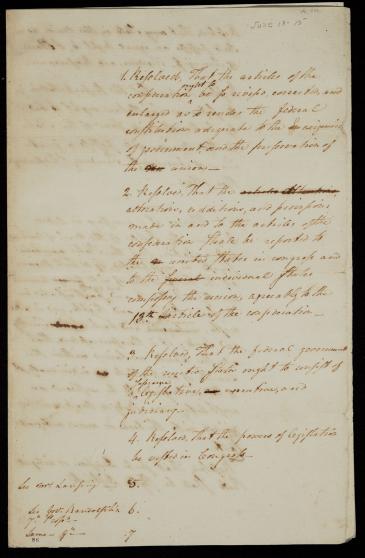 June 13-15
1. Resolved, That the articles of the
confederation ought to be so revised, corrected, and
enlarged as to render the federal
constitution adequate to the exigencies
of government, and the preservation of
the union.—
2. Resolved, That the
alterations, additions, and provisions
made in and to the articles of the
confederation shall be reported to
the united States in congress and
to the individual States
composing the union, agreeably to the
13th article of the confederation.—
3. Resolved, That the federal government
of the united States ought to consist of
a supreme legislative, executive, and
judiciary.
4. Resolved, That the powers of legislation
be vested in Congress.—
See Mr. Lansing 5.
See Gov. Randolph's 6.
7th
Same — 9th — 7